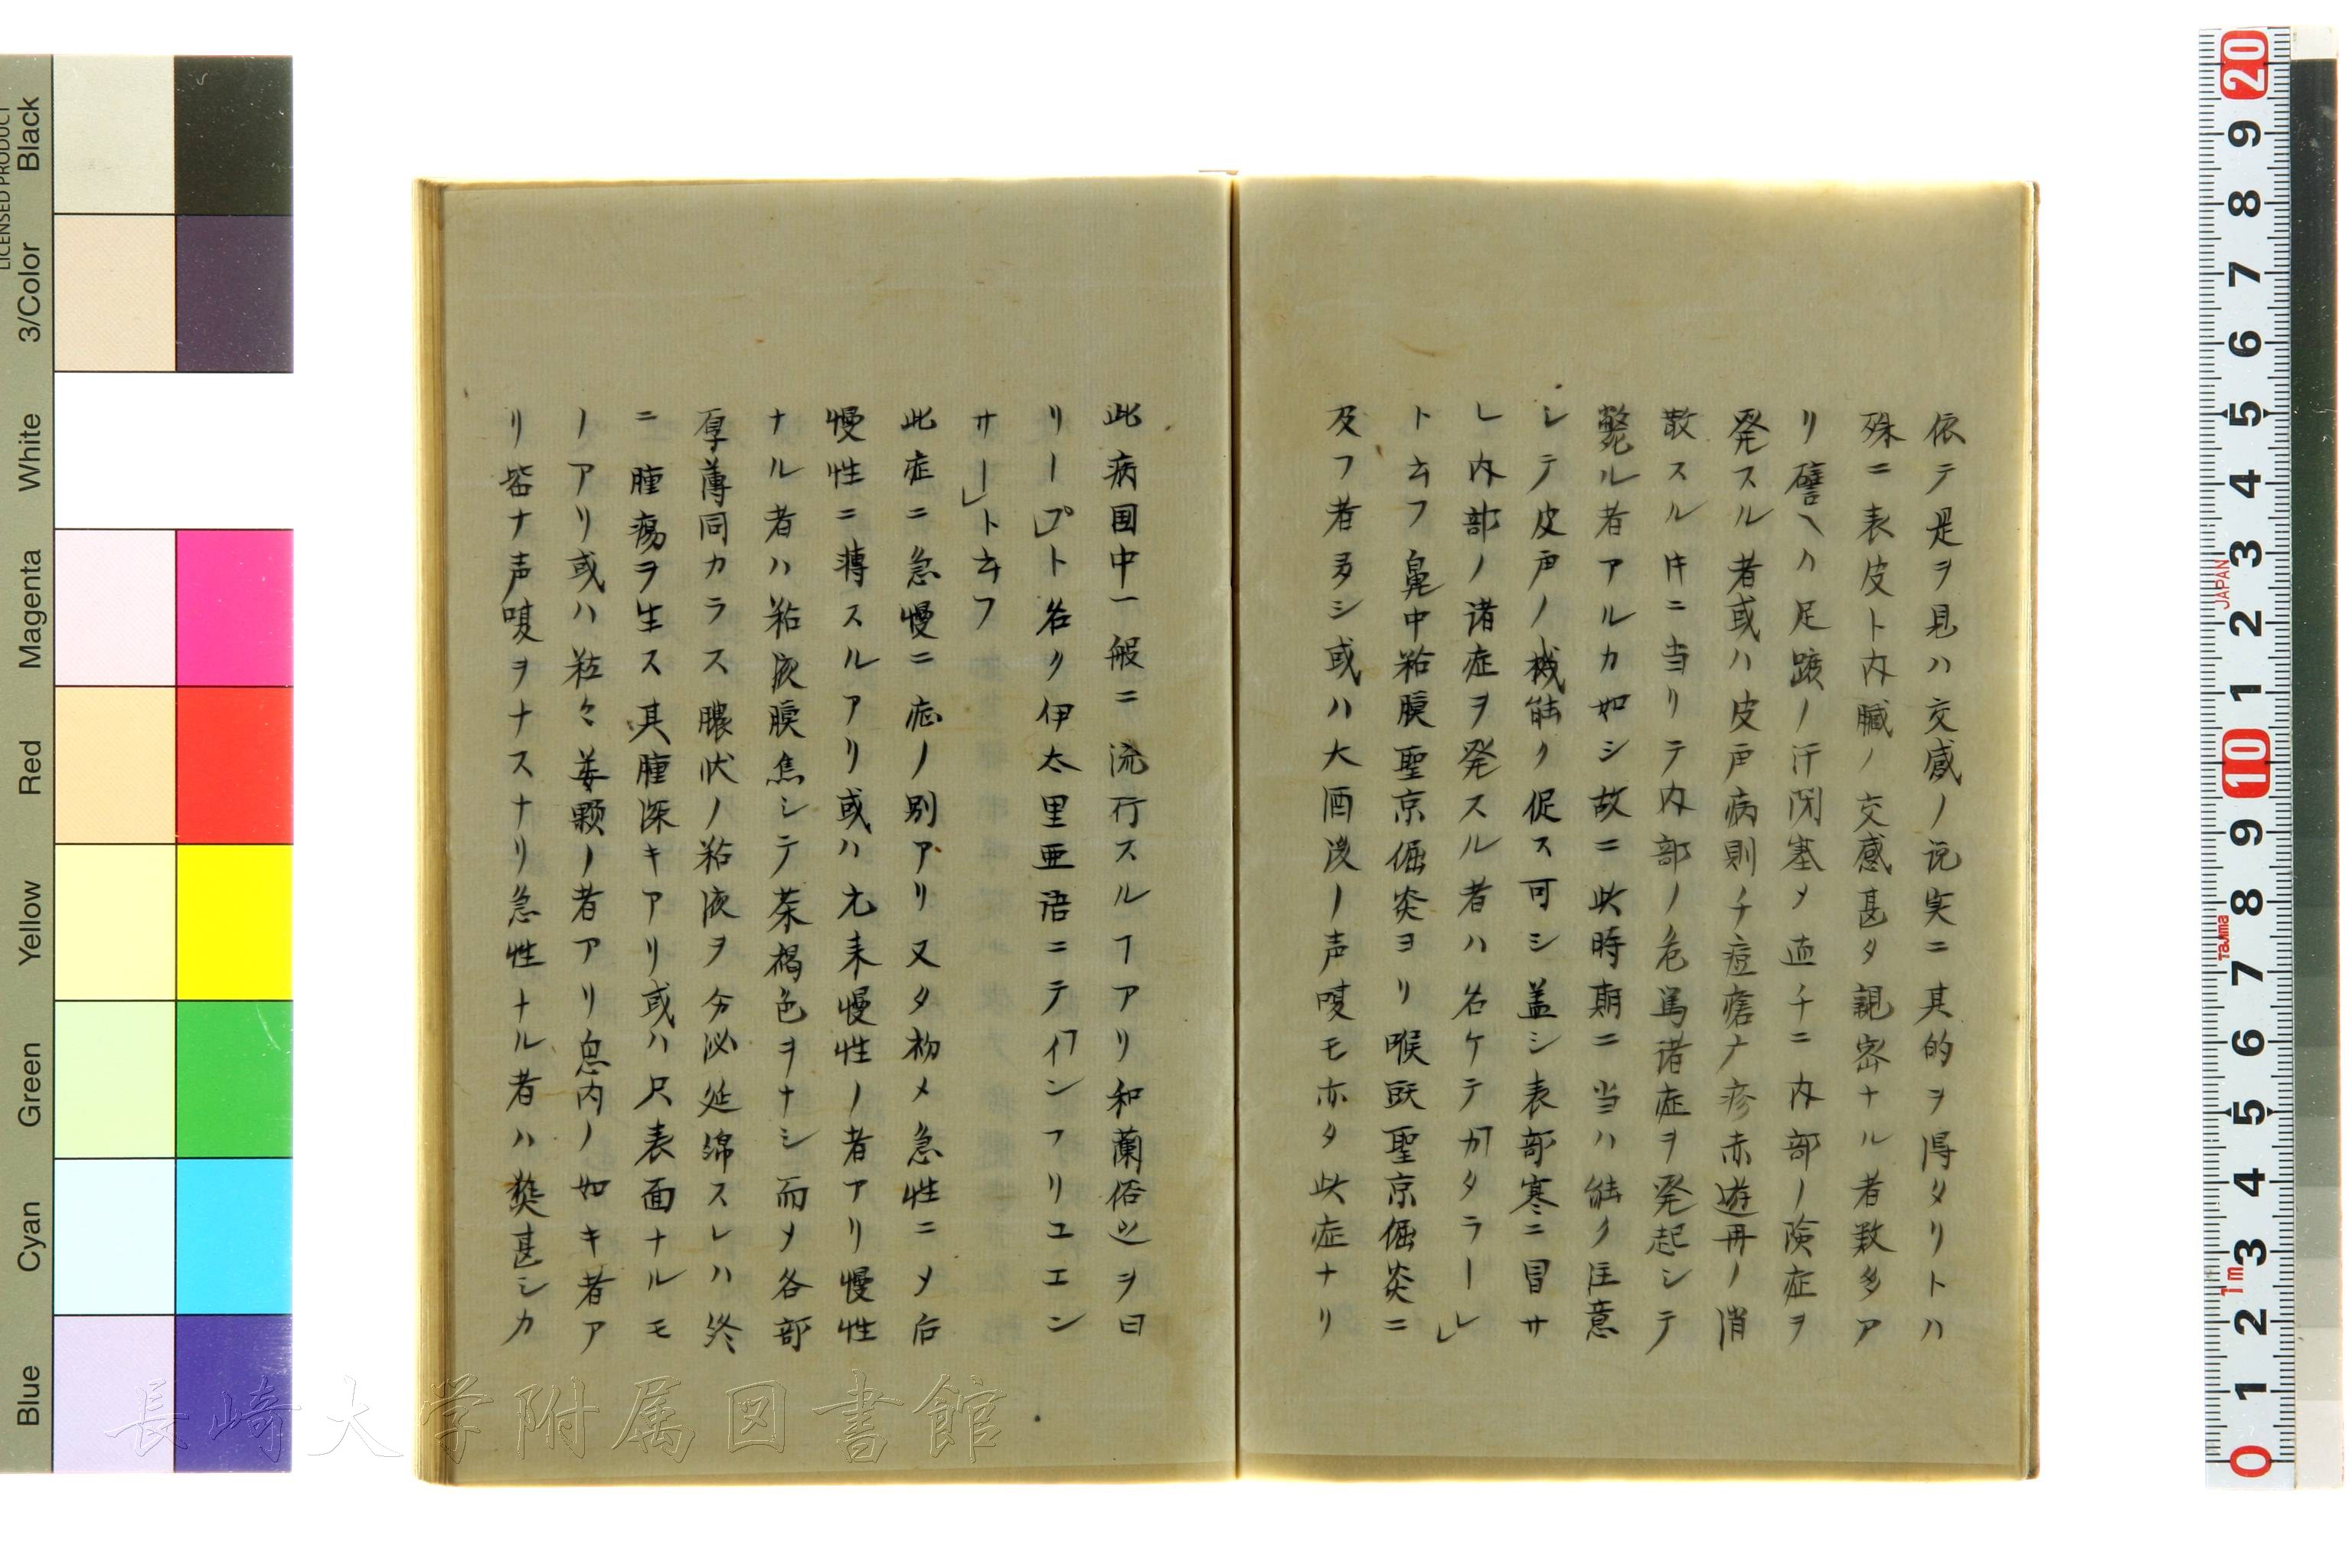 依テ是ヲ見ハ交感ノ説実ニ其的ヲ得タリトハ
殊ニ表皮ト内臓ノ交感甚タ親密ナル者数多ア
リ譬ヘハ足蹠ノ汗閉塞〆直チニ内部ノ険症ヲ
発スル者或ハ皮戸病則チ痘瘡ナ疹赤遊丹ノ消
散スル件ニ当リテ内部ノ危篤诸症ヲ発起シテ
斃ル者アルカ如シ故ニ此時期ニ当ハ能ク注意
シテ皮戸ノ機能ク促ス可シ盖シ表部寒ニ冒サ
レ内部ノ诸症ヲ発スル者ハ名ケテ「カタラールレ」
ト云フ鼻中粘膜聖京倔炎ヨリ喉
聖京倔炎ニ
及フ者多シ或ハ大酒後ノ声嗄モ亦タ此症ナリ
此病国中一般ニ流行スルヿアリ和蘭俗之ヲ曰
リープ」ト名ク伊太里亜语ニテ「インフリユエン
サー」ト云フ
此症ニ急慢ニ症ノ別アリ又タ初メ急性ニ〆后
慢性ニ轉スルアリ或ハ元来慢性ノ者アリ慢性
ナル者ハ粘液膜焦シテ茶褐色ヲナシ而〆各部
厚薄同カラス膿状ノ粘液ヲ分泌延綿スレハ終
ニ腫瘍ヲ生ス其腫深キアリ或ハ只表面ナルモ
ノアリ或ハ粒々
顆ノ者アリ息内ノ如キ者ア
リ皆ナ声嗄ヲナスナリ急性ナル者ハ焮甚シカ
LICENSED PRODUCT
Black
3/Color
White
Magenta
Red
Yellow
Green
Cyan
Blue
20
9
8
7
6
5
4
3
2
1
10
9
8
7
6
5
4
3
2
1
0
JAPAN
Tajima
1m
長崎大学附属図書館